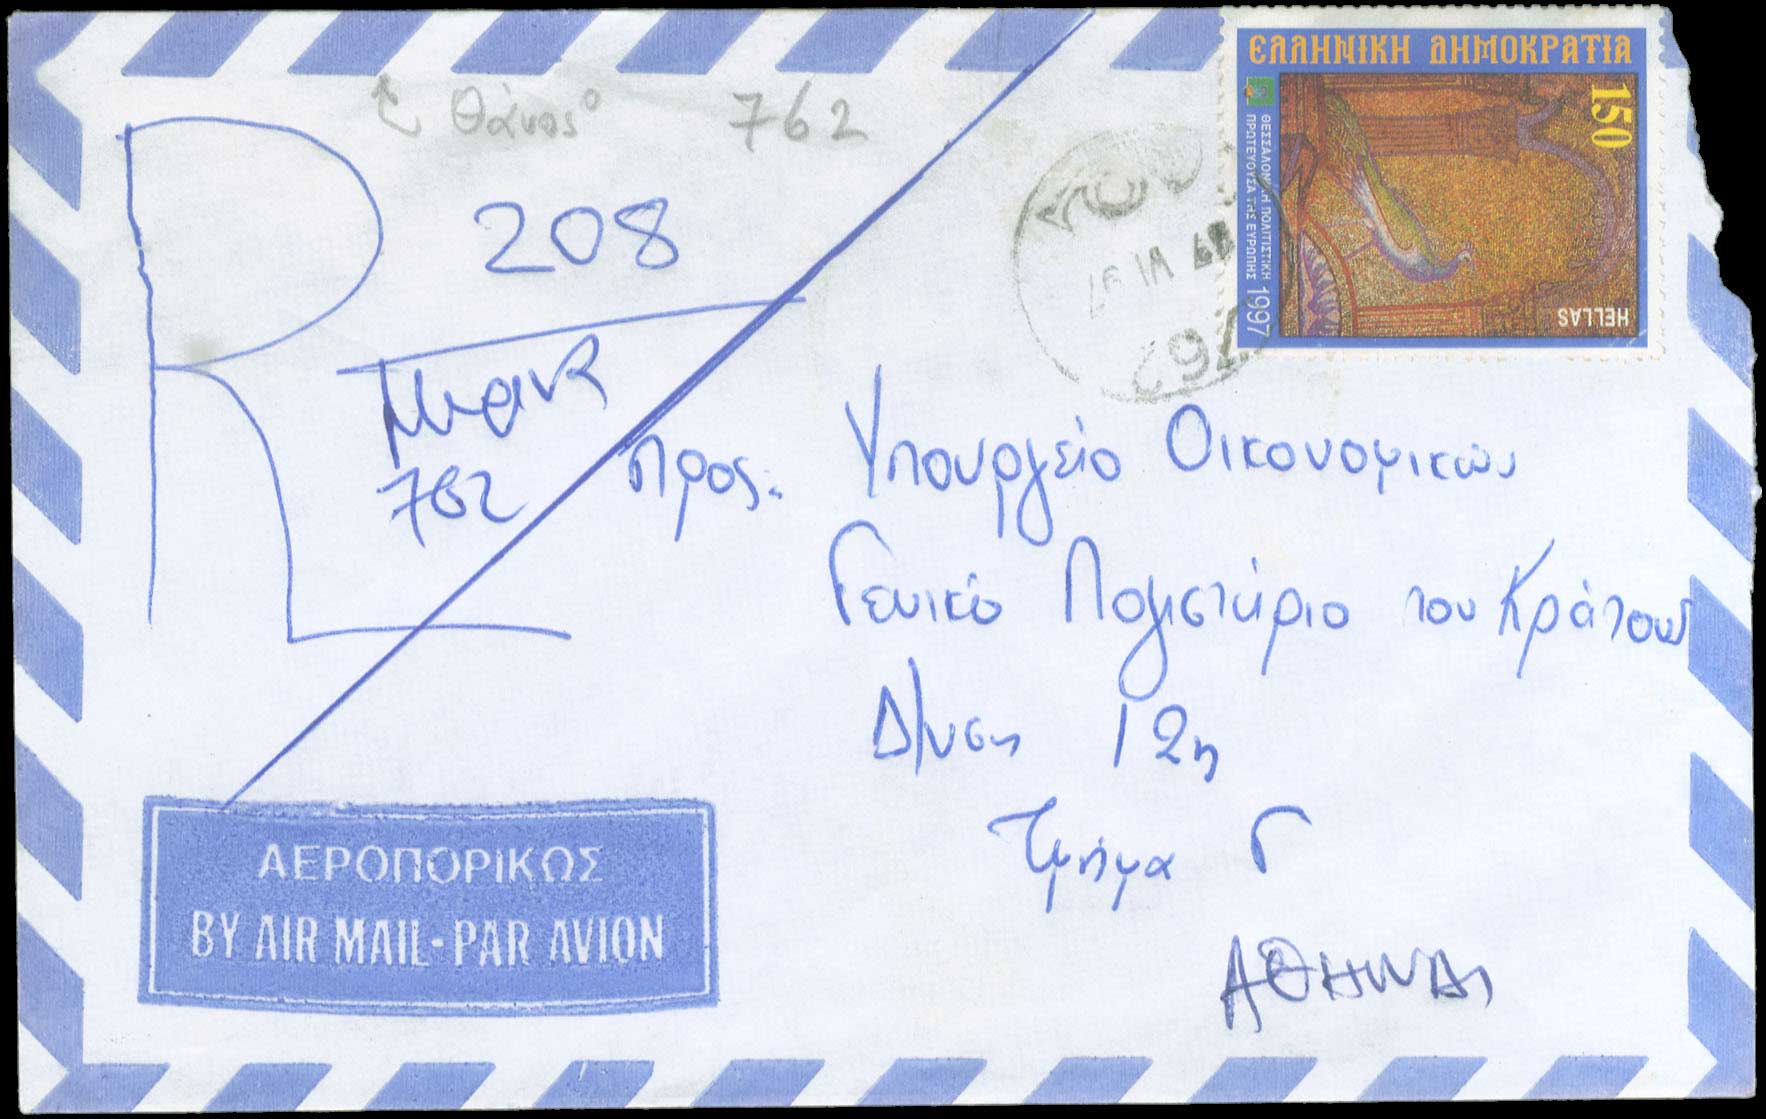 ΕΛΛΗΝΙΚΗ ΔΗΜΟΚΡΑΤΙΑ
150
ΘΕΣΣΑΛΟΝΙΚΗ ΠΟΛΙΤΙΣΤΙΚΗ
ΠΡΩΤΕΥΟΥΣΑ ΤΗΣ ΕΥΡΩΠΗΣ 1997
HELLAS
762
Θάνος 762
R 208
762
Προς: Υπουργείο Οικονομικών
Γενικό Λογιστήριο του Κράτους
Δ/νση 12η
Τμήμα Γ
ΑΘΗΝΑ
ΑΕΡΟΠΟΡΙΚΩΣ
BY AIR MAIL-PAR AVION